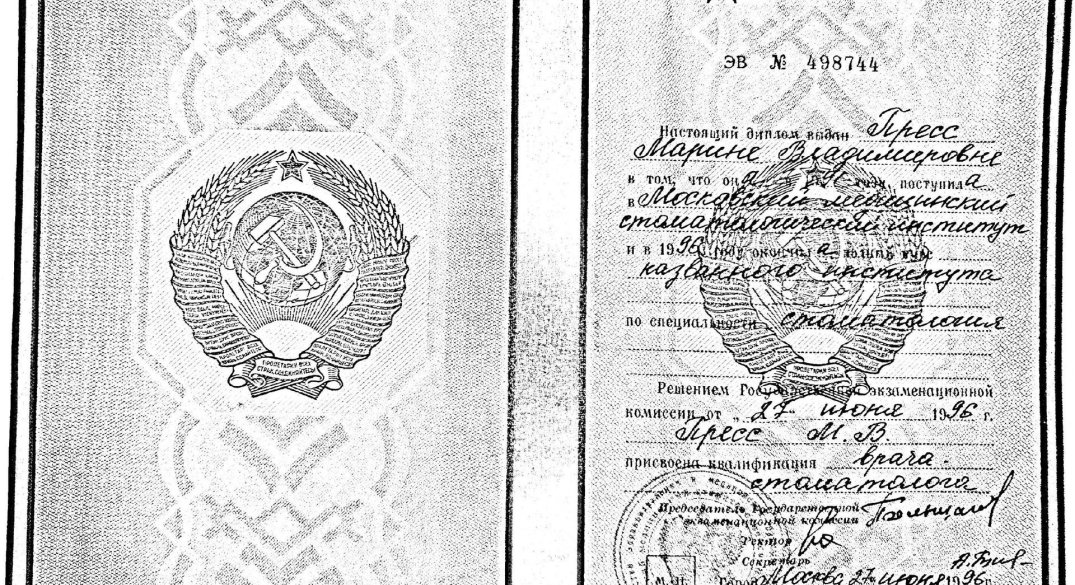 ЭВ № 498744
Настоящий диплом выдан Пресс
Марине Владимировне
в том, что она поступила
в Московский медицинский
стоматологический институт
и в 1996 году окончила полный курс
названного института
по специальности стоматология
Решением Государственной экзаменационной
комиссии от „27“ июня 1996 г.
Пресс М. В.
присвоена квалификация врача-
стоматолога
Председатель Государственной
экзаменационной комиссии
Ректор
Секретарь
М. П. Город Москва 27 июня 1996